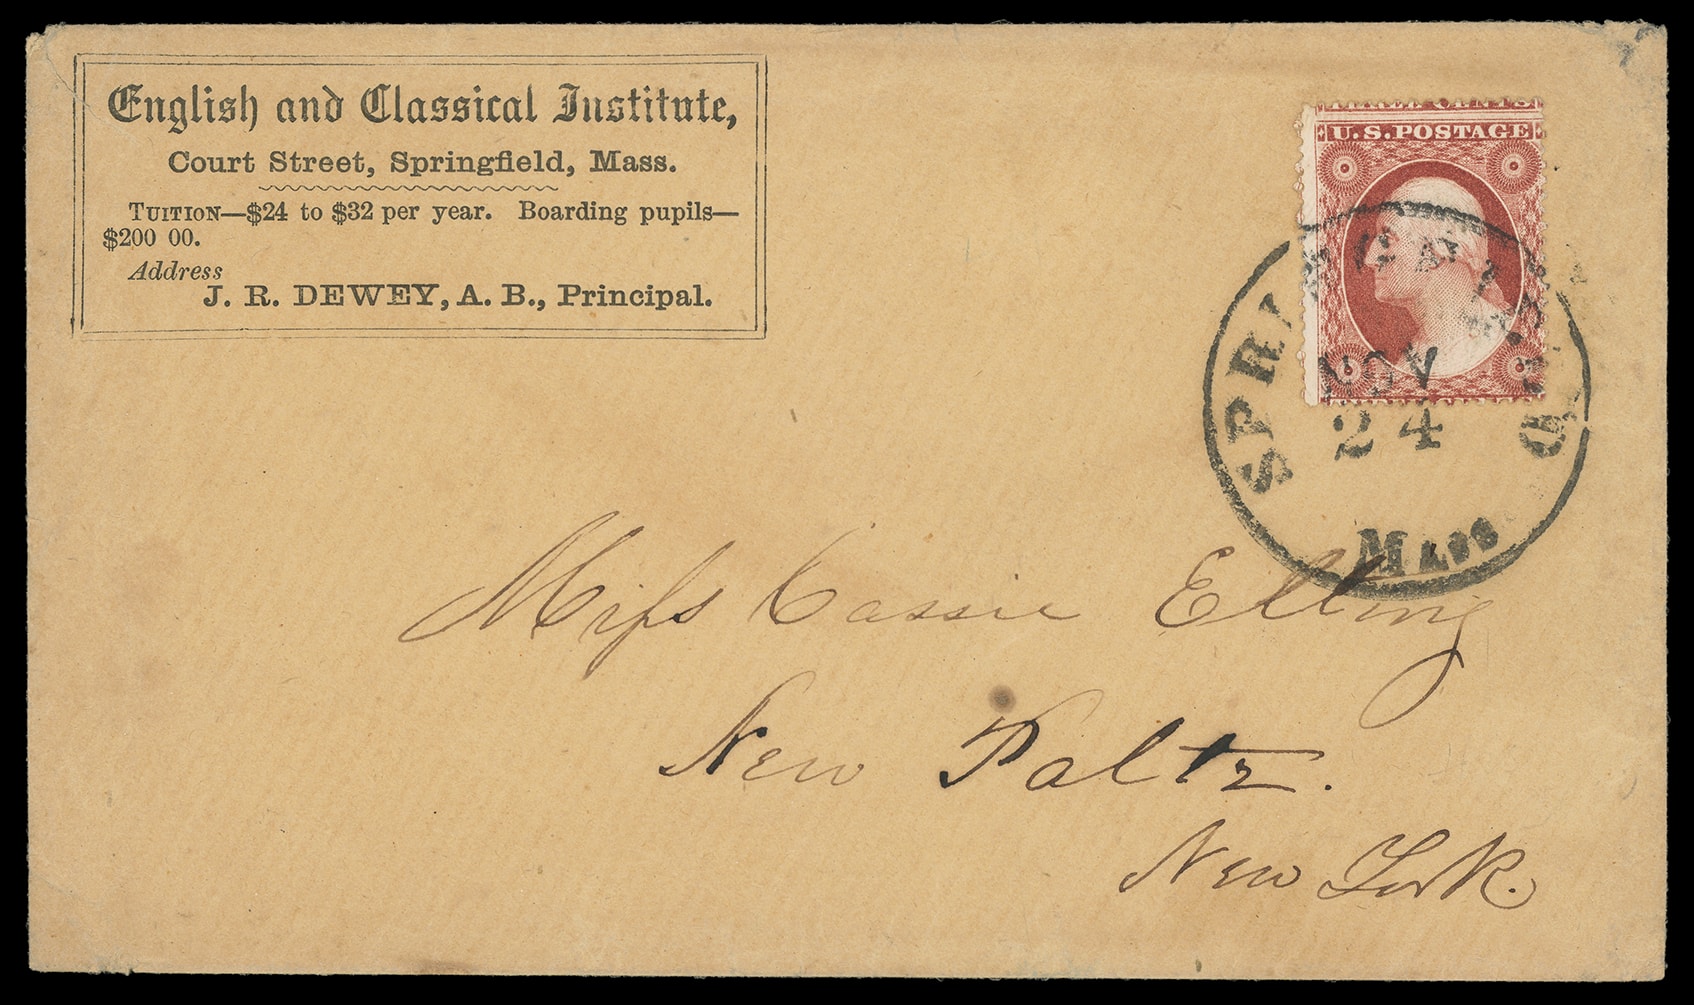 English and Classical Institute,
Court Street, Springfield, Mass.
TUITION—$24 to $32 per year. Boarding pupils—
$200 00.
Address
J. R. DEWEY, A. B., Principal.
THREE CENTS
U.S. POSTAGE
THREE CENTS
SPRINGFIELD
NOV
24
MASS
Miss Cassie Elting
New Paltz.
New York.